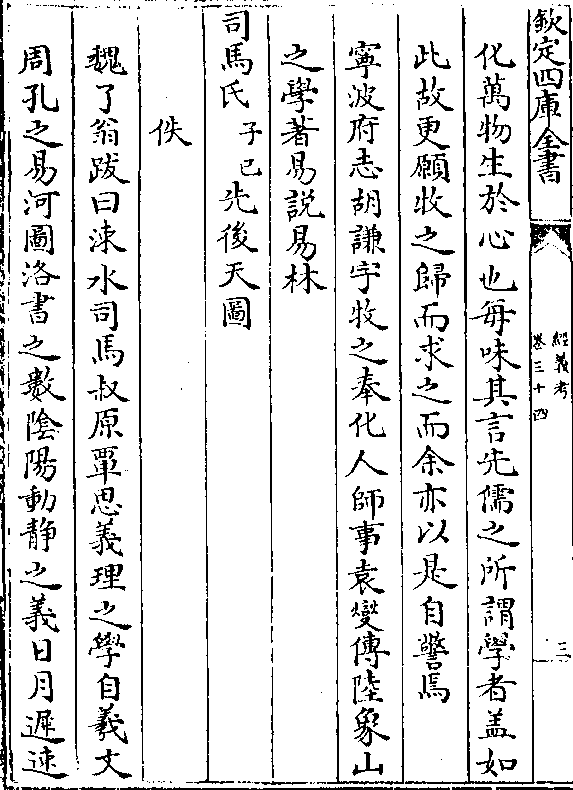 欽定四庫全書
經義考
卷三十四
三
化萬物生於心也每味其言先儒之所謂學者盖如
此故更願牧之歸而求之而余亦以是自警焉
寧波府志胡謙字牧之奉化人師事袁燮傳陸象山
之學著易説易林
司馬氏子已先後天圖
佚
魏了翁跋曰涑水司馬叔原覃思義理之學自羲文
周孔之易河圖洛書之數陰陽動静之義日月遲速